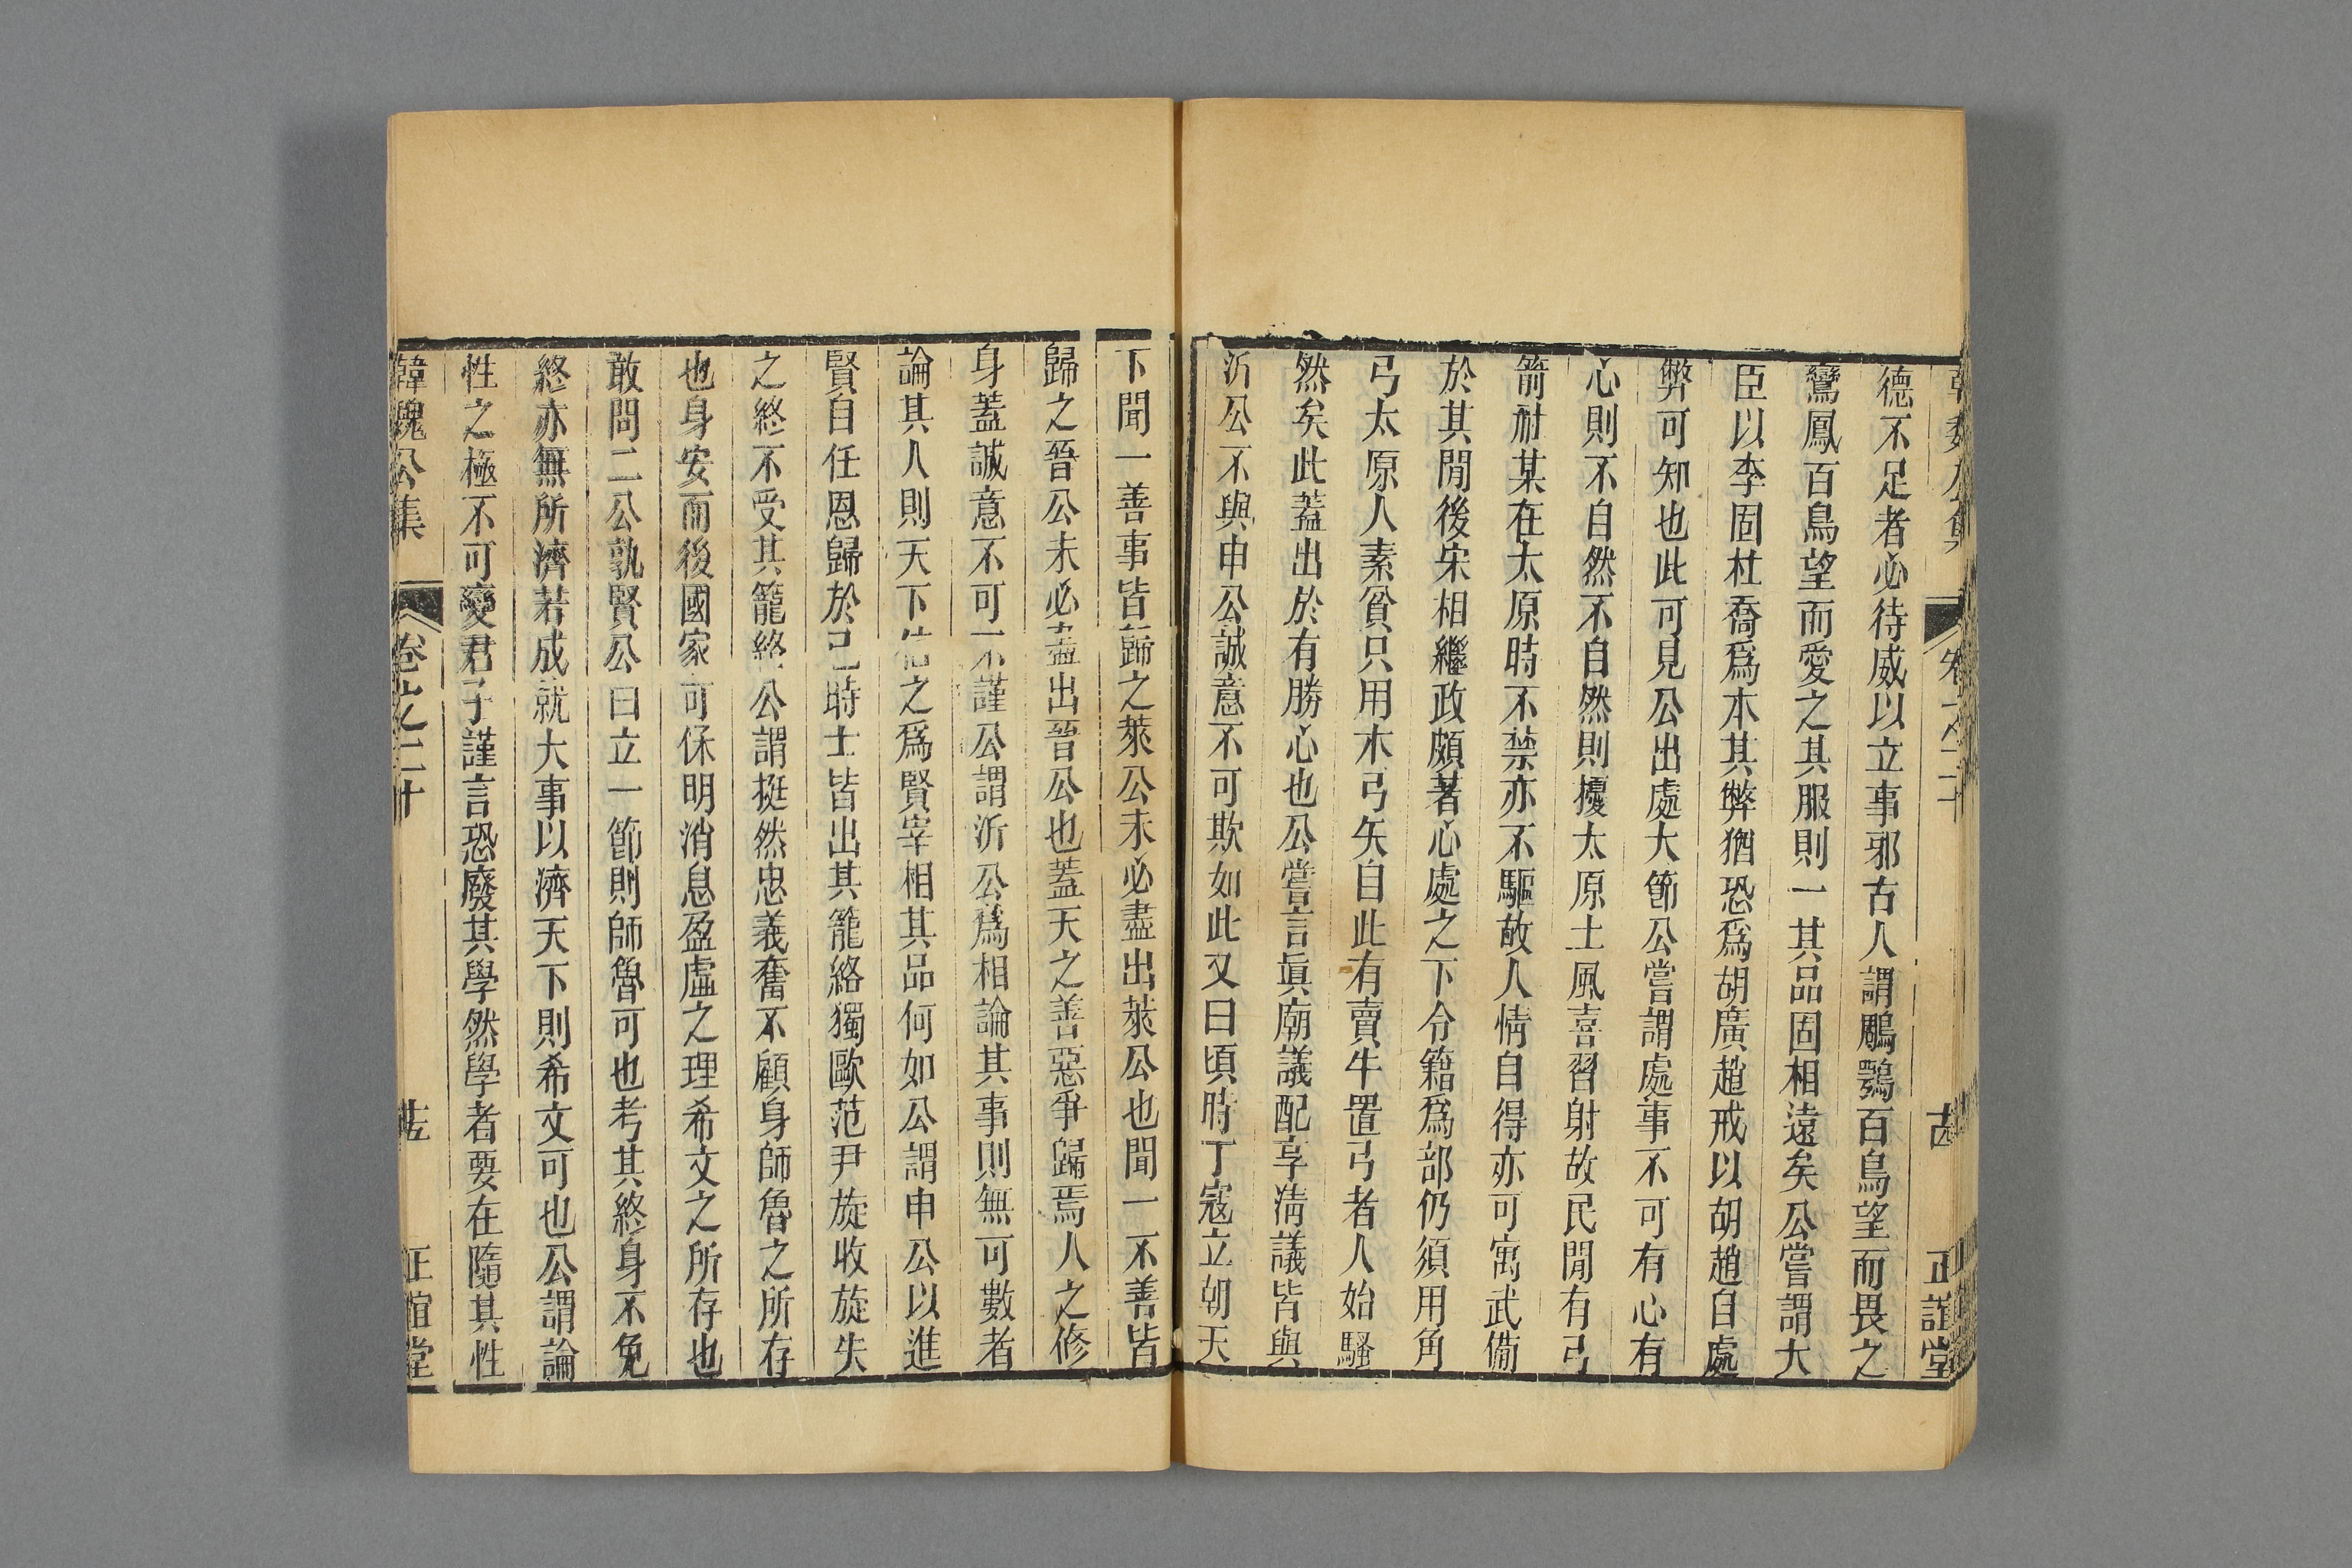 德不足者必待威以立事邪古人謂鵰鶚百鳥望而畏之
鸞鳳百鳥望而愛之其服則一其品固相遠矣公嘗謂大
臣以李固杜喬爲本其弊猶恐爲胡廣趙戒以胡趙自處
弊可知也此可見公出處大節公嘗謂處事不可有心有
心則不自然不自然則擾太原土風喜習射故民間有弓
箭社某在太原時不禁亦不驅故人情自得亦可寓武備
於其間後宋相繼政頗著心處之下令籍爲部仍須用角
弓太原人素貧只用木弓矢自此有賣牛置弓者人始騷
然矣此蓋出於有勝心也公嘗言眞廟議配享淸議皆與
沂公不與申公誠意不可欺如此又曰頃時丁寇立朝天
下聞一善事皆歸之萊公未必盡出萊公也聞一不善皆
歸之晉公未必盡出晉公也蓋天之善惡爭歸焉人之修
身蓋誠意不可不謹公謂沂公爲相論其事則無可數者
論其人則天下信之爲賢宰相其品何如公謂申公以進
賢自任恩歸於己時士皆出其籠絡獨歐范尹旋收旋失
之終不受其籠絡公謂挺然忠義奮不顧身師魯之所存
也身安而後國家可保明消息盈虛之理希文之所存也
敢問二公孰賢公曰立一節則師魯可也考其終身不免
終亦無所濟若成就大事以濟天下則希文可也公謂論
性之極不可變君子謹言恐廢其學然學者要在隨其性
韓魏公集 卷之二十 正誼堂